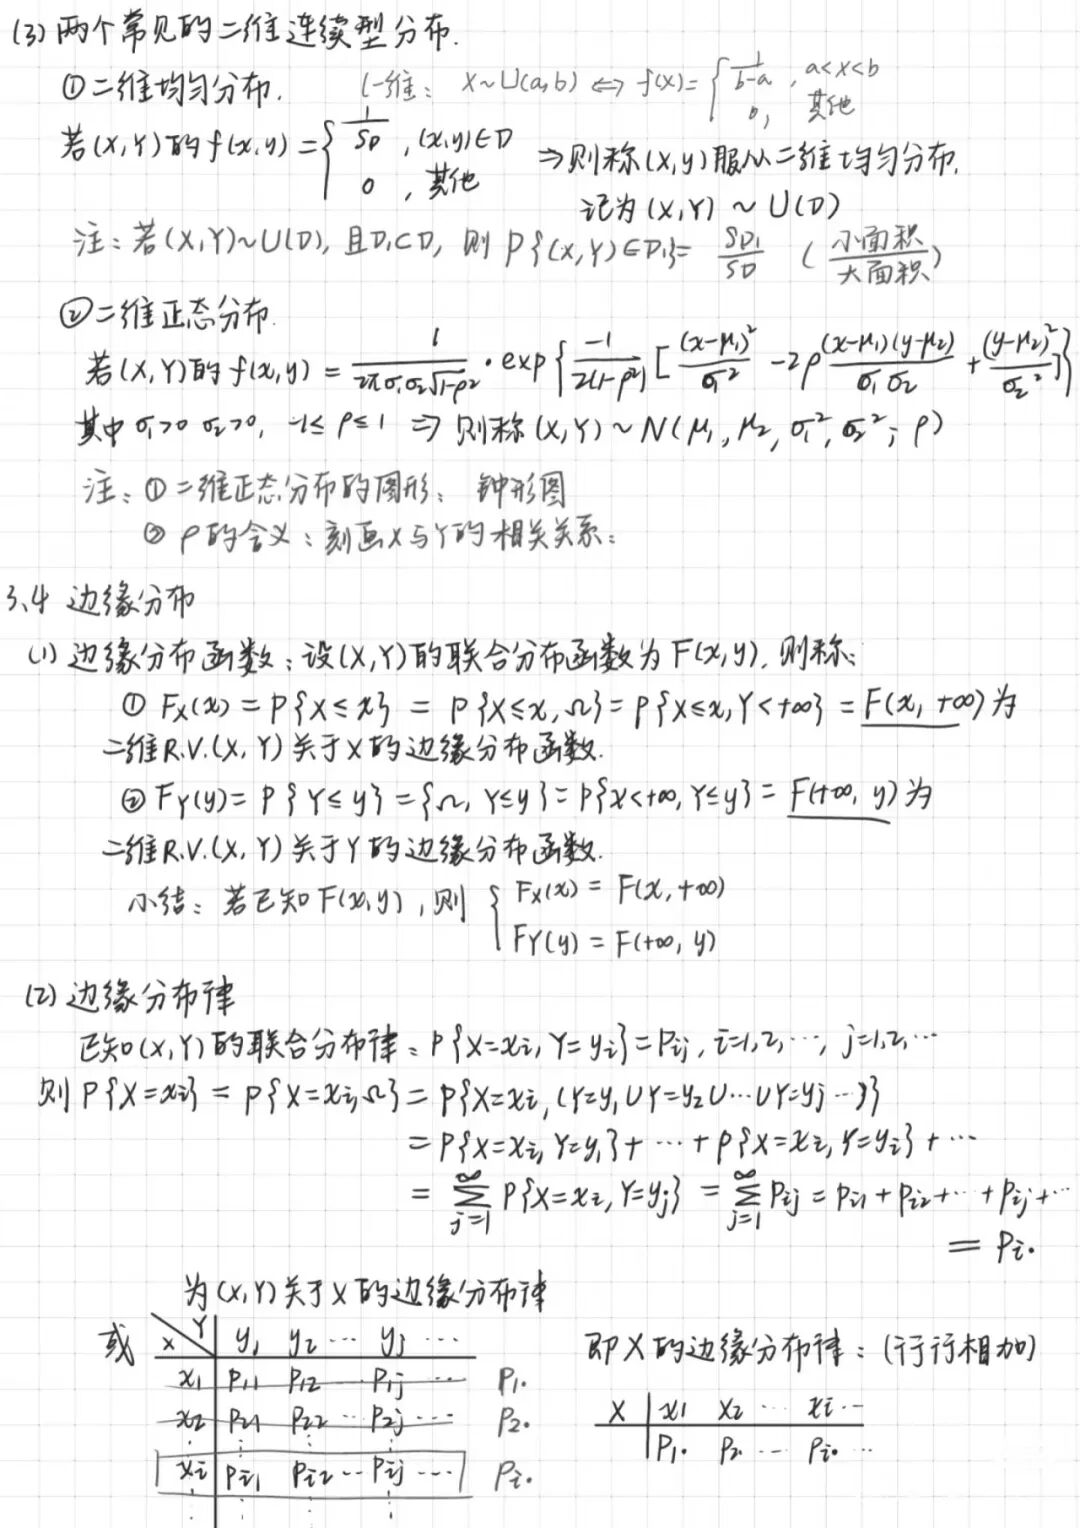 (3) 两个常见的二维连续型分布.
①二维均匀分布. (一维: X~U(a,b) ⇔ f(x)={ 1/(b-a), a<x<b
0, 其他
若(X,Y)的f(x,y)={ 1/S_D, (x,y)∈D ⇒则称(X,y)服从二维均匀分布.
0, 其他
记为(X,Y) ~ U(D)
注:若(X,Y)~U(D),且D₁⊂D, 则 P{(X,Y)∈D₁}= S_D₁/S_D (小面积/大面积)
②二维正态分布.
若(X,Y)的f(x,y) = 1/(2πσ₁σ₂√(1-ρ²)) · exp{ -1/(2(1-ρ²)) [ (x-μ₁)²/σ₁² -2ρ (x-μ₁)(y-μ₂)/(σ₁σ₂) + (y-μ₂)²/σ₂² ]}
其中σ₁>0 σ₂>0, -1≤ρ≤1 ⇒ 则称(X,Y)~N(μ₁,μ₂,σ₁²,σ₂²;ρ)
注:①二维正态分布的图形:钟形图
②ρ的含义:刻画X与Y的相关关系;
3.4 边缘分布
(1) 边缘分布函数:设(X,Y)的联合分布函数为F(x,y).则称:
① F_X(x) = P{X≤x} = P{X≤x,Ω}= P{X≤x,Y<+∞} = F(x,+∞)为
二维R.V.(X,Y)关于X的边缘分布函数.
② F_Y(y)= P{Y≤y} ={Ω,Y≤y}= P{X<+∞,Y≤y} = F(+∞,y)为
二维R.V.(X,Y)关于Y的边缘分布函数.
小结:若已知F(x,y),则{ F_X(x) = F(x,+∞)
F_Y(y) = F(+∞,y)
(2) 边缘分布律
已知(X,Y)的联合分布律:P{X=x_i,Y=y_i}=P_ij, i=1,2,…, j=1,2,…
则P{X=x_i} = P{X=x_i,Ω} = P{X=x_i,(Y=y₁∪Y=y₂∪…∪Y=y_j…)}
= P{X=x_i,Y=y₁}+ … + P{X=x_i,Y=y_i}+ …
= ∑_{j=1}^{∞} P{X=x_i,Y=y_j} = ∑_{j=1}^{∞} P_ij = P_i1+P_i2+…+P_ij+…
= P_i·
为(X,Y)关于X的边缘分布律
或 X Y y₁ y₂ … y_j … 即X的边缘分布律:(行行相加)
x₁ P₁₁ P₁₂ … P_1j … P₁·
x₂ P₂₁ P₂₂ … P_2j … P₂·
X x₁ x₂ … x_i …
P₁· P₂· … P_i· …
x_i P_i1 P_i2 … P_ij … P_i·